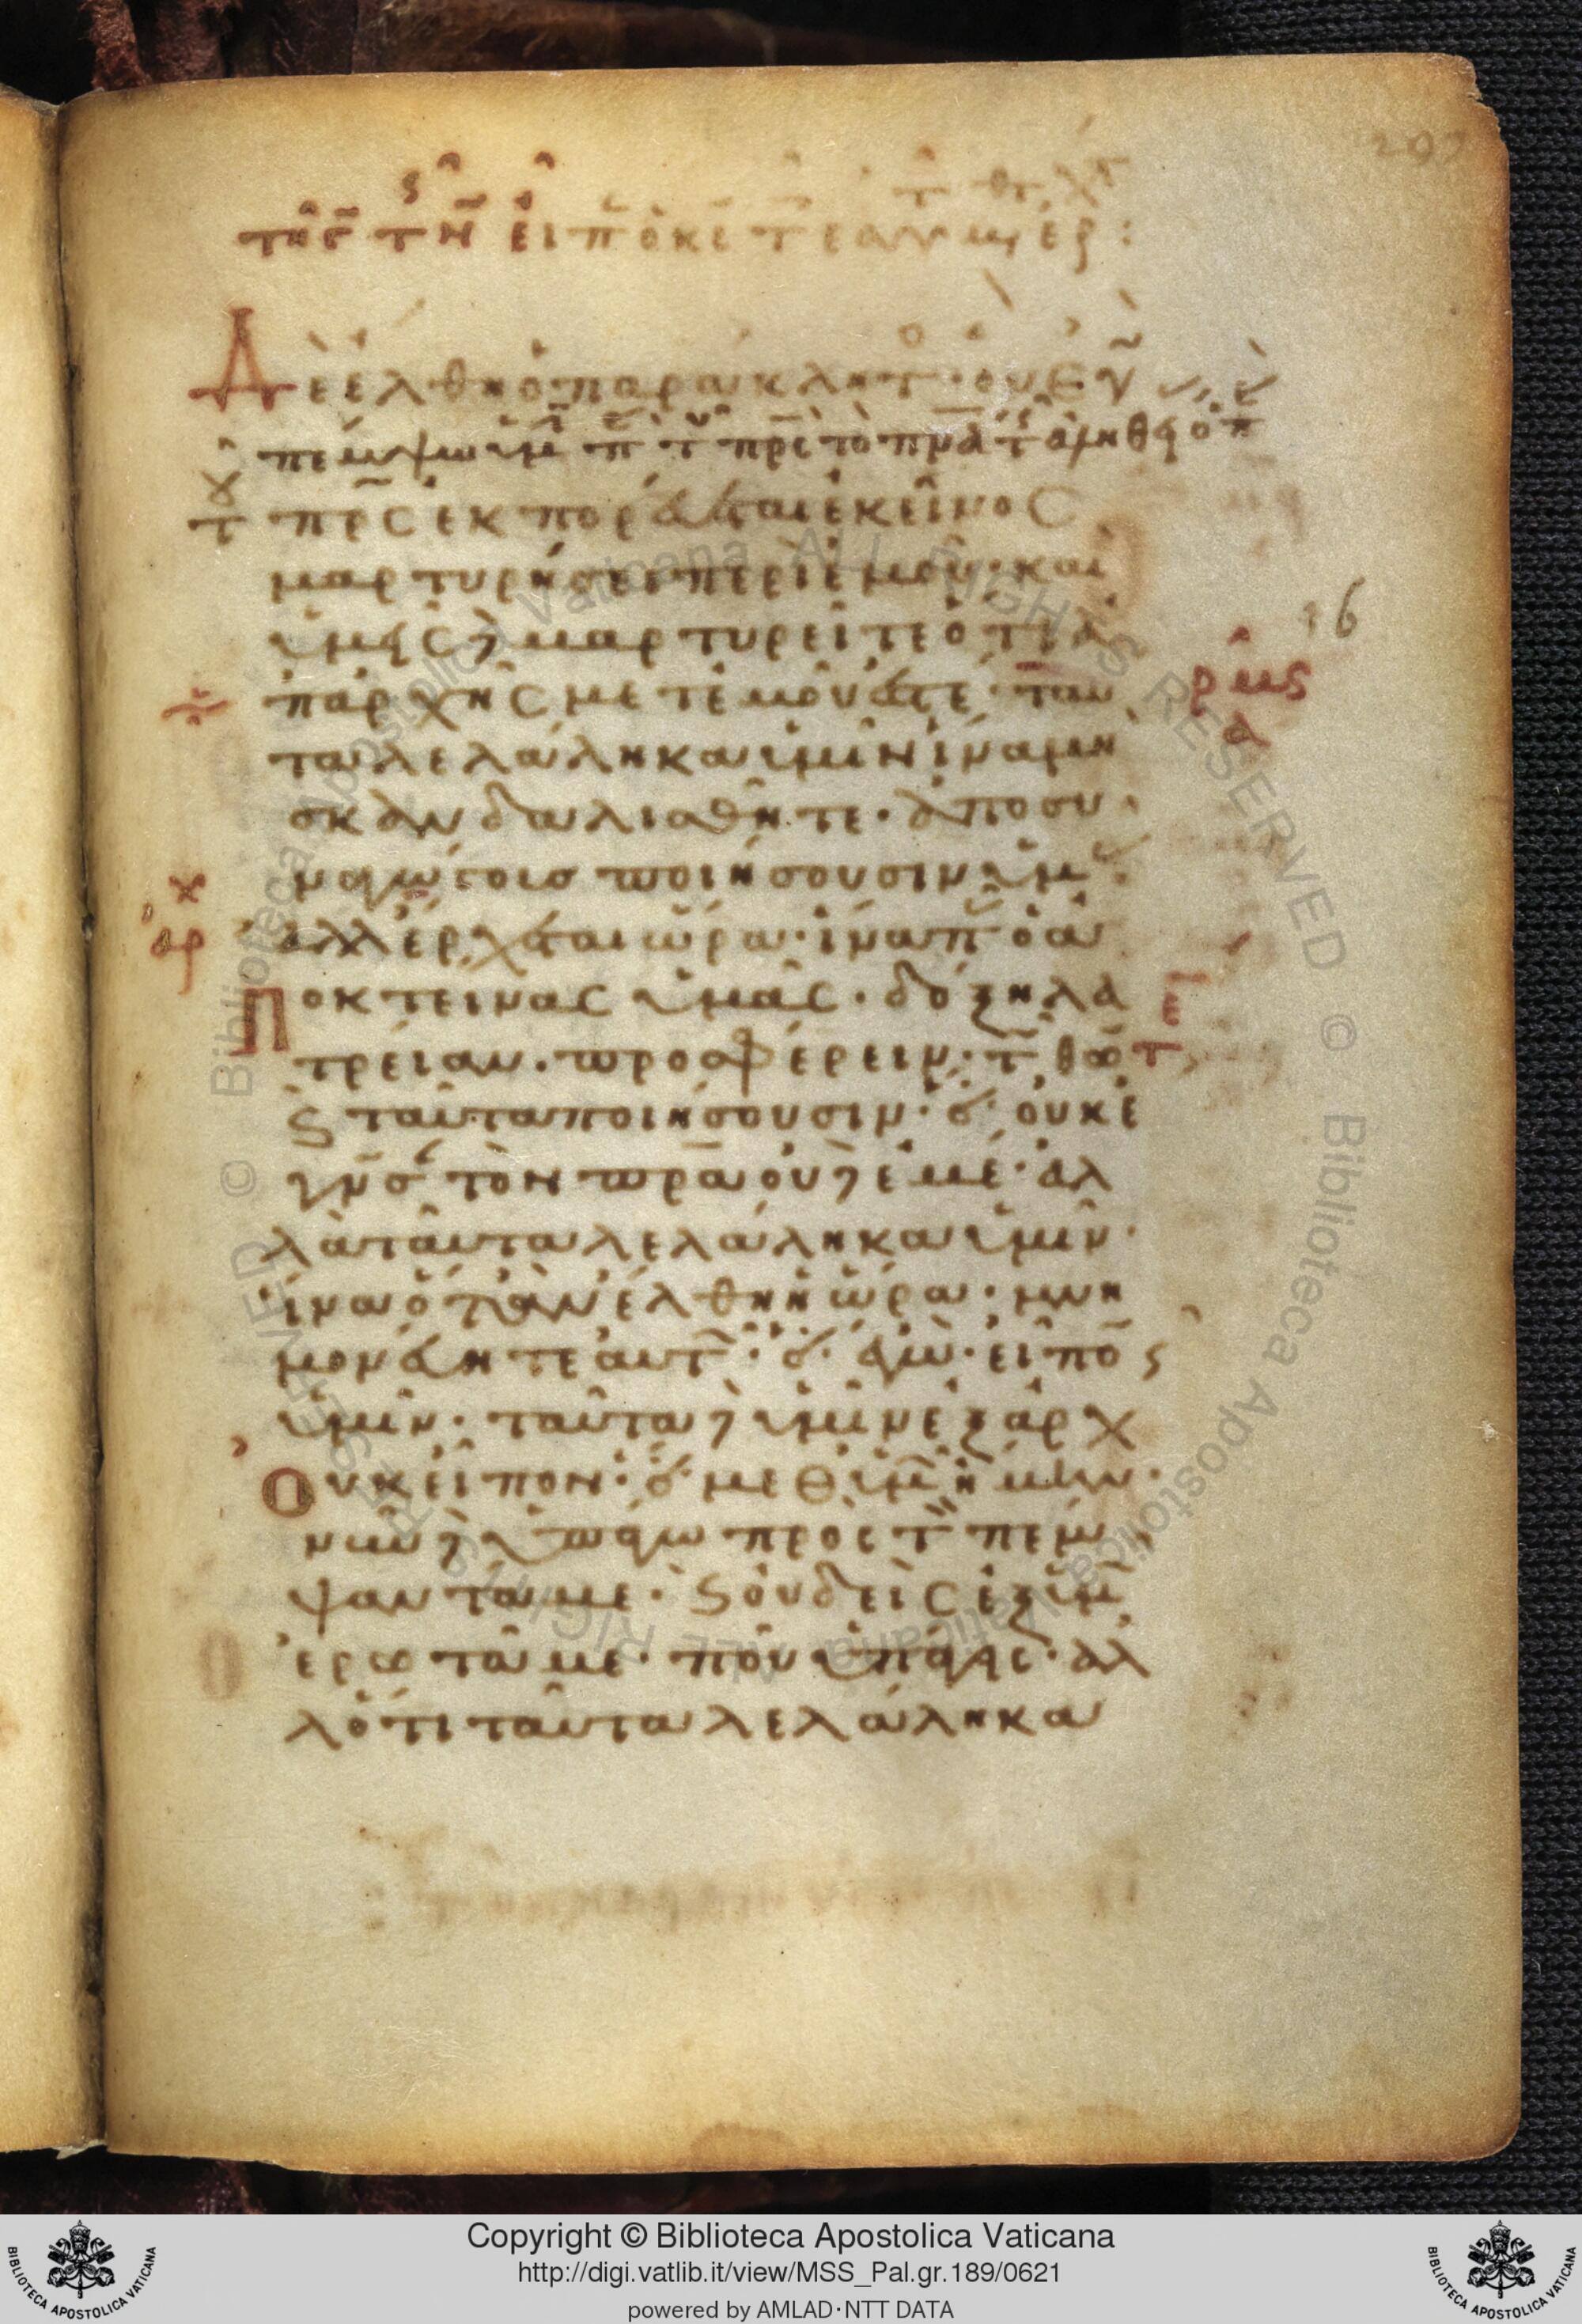 ὲ ἔλθη ὁ παράκλητ ὁν ἐγ
πέμψω ὑμ π τ πρς τὸ πνα τ ἀληθ ὁ π
τ πρς ἐκπορεύεται ἐκεῖνοσ
μαρτυρήσει περὶ ἐμοῦ· καὶ
ὑμεῖς μαρτυρεῖτε ὅτι ἀ
π ἀρχῆς μετ ἐμοῦ ἐστέ· ταυ
τα λελάληκα ὑμῖν ἵνα μὴ
σκανδαλισθῆτε· ἀποσυ
ναγώγουσ ποιήσουσιν ὑμ
ἀλλ ἔρχεται ὥρα· ἵνα π ὁ ἀ
ποκτείνας ὑμᾶς· δόξη λα
τρείαν· προσφέρειν τ θω
ϛ ταῦτα ποιήσουσιν· ὅ οὐκ ἔ
γνσ τὸν πρα οὐ ἐμέ· ἀλ
λὰ ταῦτα λελάληκα ὑμῖν·
ἵνα ὅταν ἔλθη ἡ ὥρα· μνη
μονεύητε αὐτ· ὅ ἐγὼ· εἶπο
ὑμῖν· ταῦτα ὑμῖν ἐξ ἀρχ
Οὐκ εἶπον· ὅ μεθ ὑμ ἤμην·
νῦν ὑπάγω πρὸς τ πέμ
ψαντά με· ϛ οὐδεὶς ἐξ ὑμ
ἐρωτᾶ με· ποῦ ὑπάγεις· ἀλ
λ ὅτι ταῦτα λελάληκα
16
Copyright © Biblioteca Apostolica Vaticana
http://digi.vatlib.it/view/MSS_Pal.gr.189/0621
powered by AMLAD·NTT DATA
BIBLIOTECA APOSTOLICA VATICANA
BIBLIOTECA APOSTOLICA VATICANA